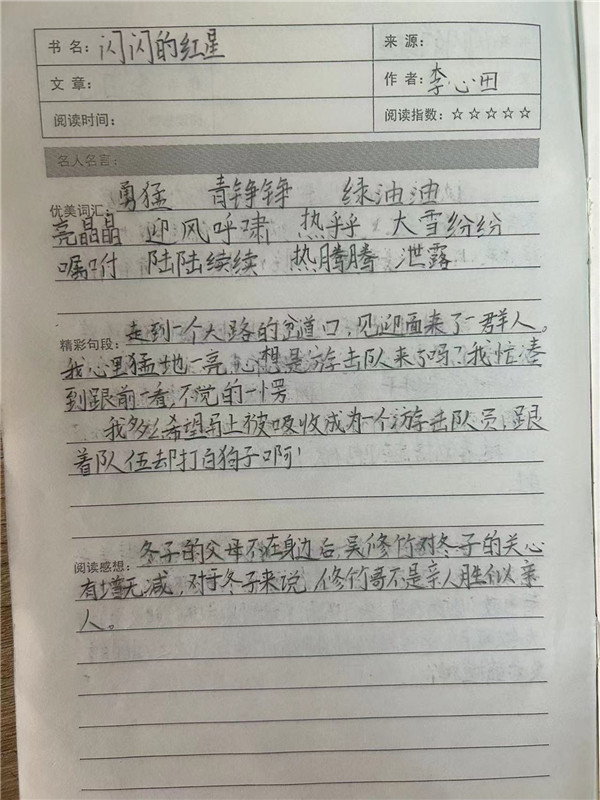 书名：闪闪的红星 来源：
文章： 作者：李心田
阅读时间： 阅读指数：☆☆☆☆☆
名人名言：
优美词汇：勇猛 青铮铮 绿油油
亮晶晶 迎风呼啸 热乎乎 大雪纷纷
嘱咐 陆陆续续 热腾腾 泄露
精彩句段：走到一个大路的岔道口，见迎面来了一群人。
我心里猛地一亮，心想是游击队来了吗？我忙凑
到跟前一看，不觉的一愣
我多么希望马上被吸收成为一个游击队员，跟
着队伍却打白狗子啊！
阅读感想：冬子的父母不在身边后，吴修竹对冬子的关心
有增无减，对于冬子来说，修竹哥不是亲人胜似亲
人。